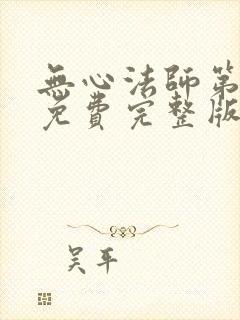 無心法師第
免費完整版
吴平